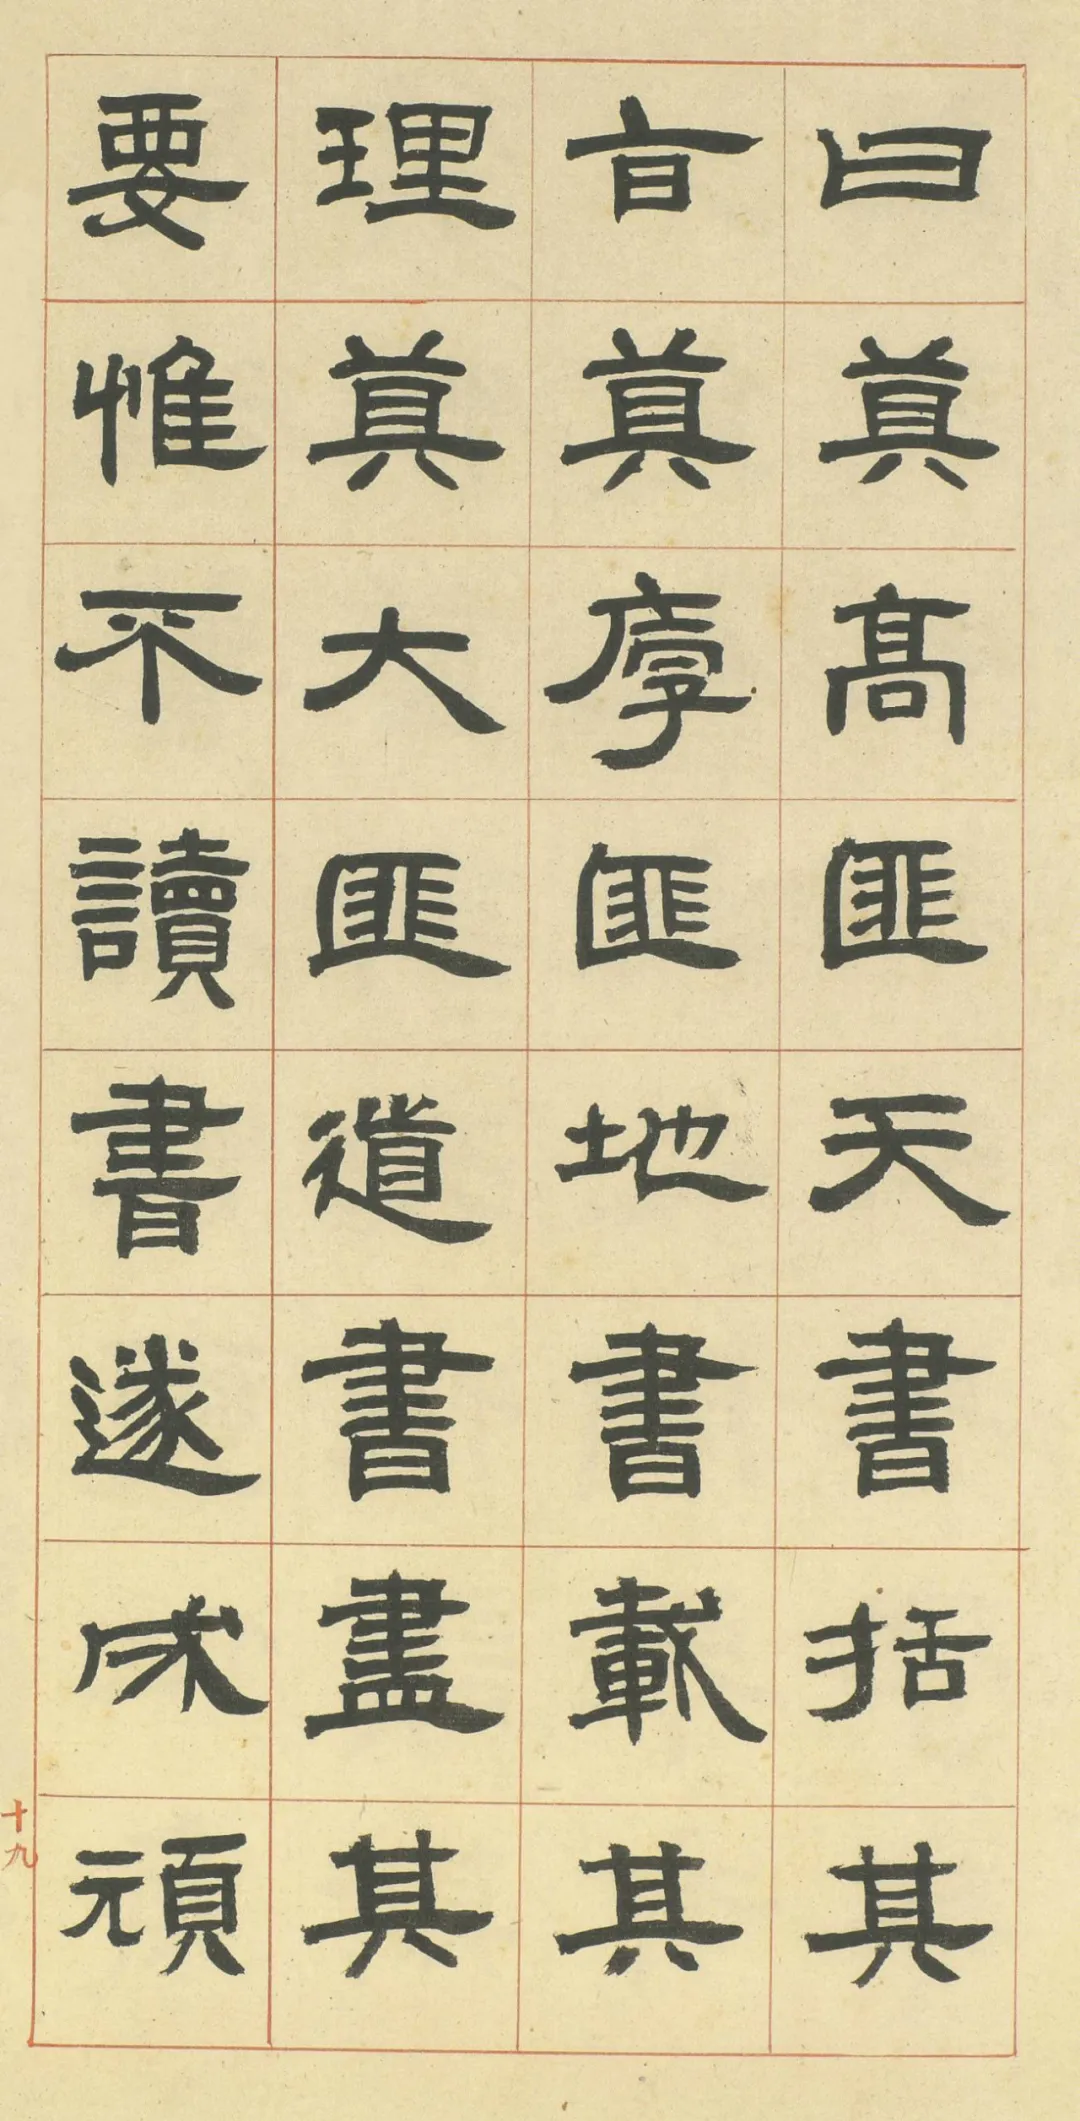 曰莫高匪天書括其
旨莫厚匪地書載其
理莫大匪道書盡其
要惟不讀書遂成頑
十九